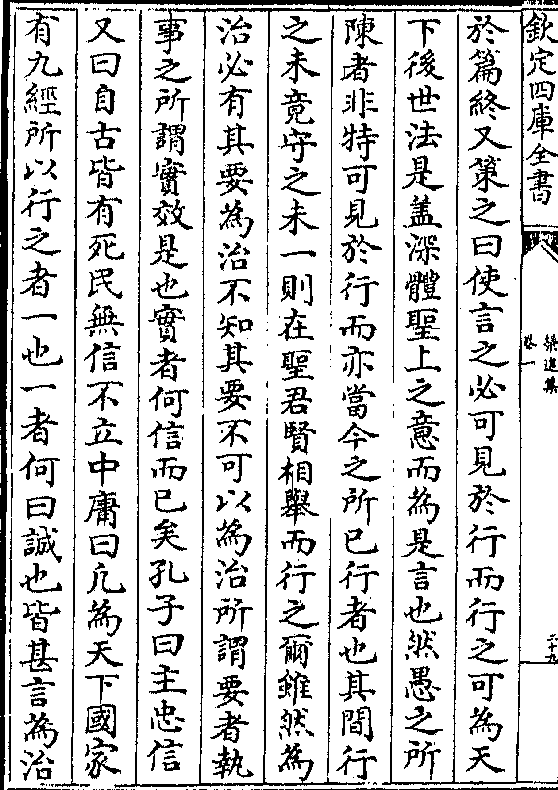 欽定四庫全書
榘進集
卷一
二十九
於篇終又策之曰使言之必可見於行而行之可為天
下後世法是蓋深體聖上之意而為是言也然愚之所
陳者非特可見於行而亦當今之所已行者也其間行
之未竟守之未一則在聖君賢相舉而行之爾雖然為
治必有其要為治不知其要不可以為治所謂要者執
事之所謂實效是也實者何信而已矣孔子曰主忠信
又曰自古皆有死民無信不立中庸曰凡為天下國家
有九經所以行之者一也一者何曰誠也皆甚言為治